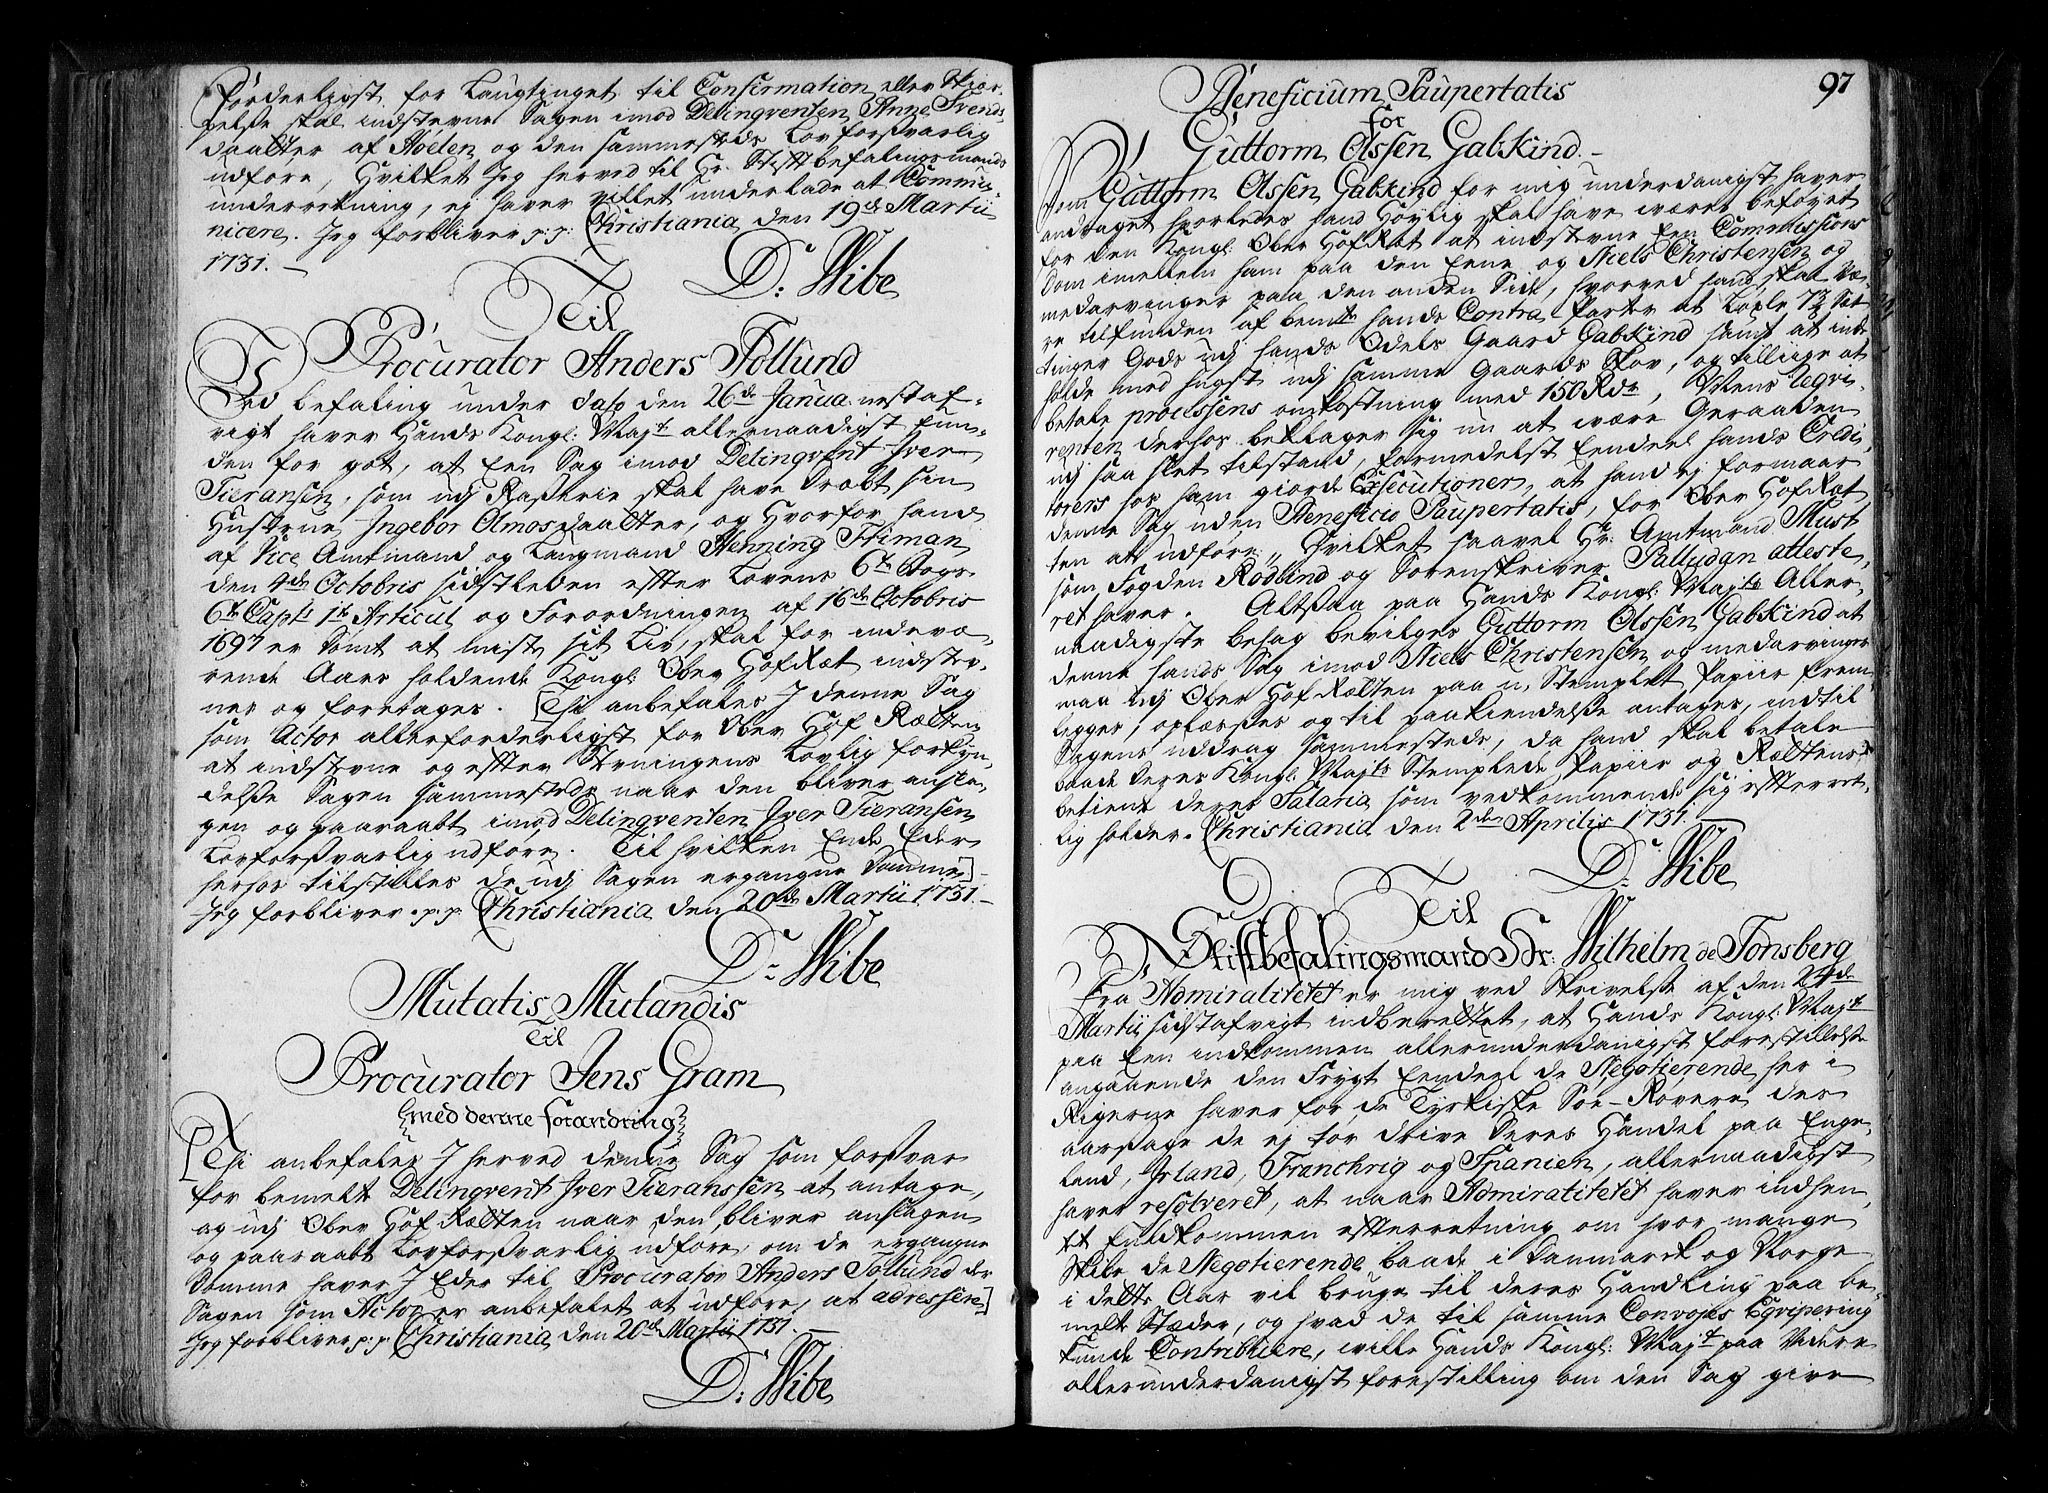 forderligst for Laugtinget til Confirmation eller Skier-
pelse skal indstevne Sagen imod Delinqventen Anne Svends-
daatter af Høelen og den sammesteds Lovforsvarlig
udføre, Hvilket Jeg herved til Hr. Stiftbefalingsmands
underretning, ej haver villet underlade at Commu-
nicere. Jeg forbliver p: p: Christiania den 19de Martii
1731. –
D: Wibe
Til
Procurator Anders Tollund
Ved befaling under dato den 26de Janua: nestaf-
vigt haver Hands Kongl: Majt allernaadigst fun-
den for got, at Een Sag imod Delinqvent Iver
Tieransen, som udj Raserie skal have dræbt sin
Hustrue Ingebor Olmosdaatter, og Hvorfor hand
af Vice Amtmand og Laugmand Henning Friman
den 4de Octobris sidstleden efter Lovens 6te Bogs
6te Capt: 1te Articul og Forordningen af 16de Octobris
1697 er dømt at miste sit Liv, skal for indevæ-
rende Aars holdende Kongl: Ober Hof Ræt indstev-
nes og foretages. [Thi anbefales I denne Sag
som Actor allerforderligst for Ober Hof Rætten
at indstevne og efter Stevningens Lovlig forkyn-
delse Sagen sammesteds naar den bliver ansla-
gen og paaraabt imod Delinqventen Iver Tieransen
Lovforsvarlig udføre. Til hvilken Ende Eder
herhos tilstilles de udj Sagen ergangne Domme]
Jeg forbliver p: p: Christiania den 20de Martii 1731. –
D: Wibe
Mutatis Mutandis
Til
Procurator Jens Gram
med denne forandring
[Thi anbefales I herved denne Sag som forsvar
for bemelte Delinqvent Iver Tieranssen at antage,
og udj Ober Hof Rætten naar den bliver anslagen
og paaraabt Lovforsvarlig udføre, om de ergangne
Domme haver I Eder til Procurator Anders Tollund der
Sagen som Actor er anbefalet at udføre, at adressere]
Jeg forbliver p: p: Christiania den 20de Martii 1731. –
D: Wibe
97
Beneficium Paupertatis
for
Guttorm Olssen Gabskind. –
Som Guttorm Olssen Gabskind for mig underdanigst haver
andraget hvorledes hand Høylig skal have været beføyet
for den Kongl: Ober Hof Ræt at indstevne Een Commissions
Dom imellem ham paa den Eene og Niels Christensen og
medarvinger paa den anden Side, hvorved hand skal Væ-
re tilfunden af bemte hands Contra Parter at Løxle 7½ Set-
tinger Gods udj hands Odels Gaard Gabskind samt at inde-
holde med hugst udj samme Gaards Skov, og tillige at
betale processens omkostning med 150 Rdr, Citens Reqvi-
renten derhos beklager sig nu at være Geraaden
udj saa slet tilstand, formedelst Eendeel hands Credi-
torers hos ham giorde Executioner, at hand ej formaar
denne Sag uden Beneficio Paupertatis, for Ober Hof Ræt-
ten at udføre, Hvilket saavel Hr: Amtmand Must
som Fogden Rødlund og Sorenskriver Palludan atteste-
ret haver. Altsaa paa Hands Kongl: Majts Aller-
naadigste behag bevilges Guttorm Olssen Gabskind at
denne hands Sag imod Niels Christensen og medarvinger
maa udj Ober Hof Rætten paa u-Stemplet Papiir frem-
legges, oplæses og til paakiendelse antages, indtil
Sagens uddrag sammesteds, da hand skal betale
baade deres Kongl: Majts Stemplede Papiir og Rættens
betient deres Salaria, som vedkommende sig efterret-
lig holder. Christiania den 2den Aprilis 1731. –
D: Wibe
Til
Stiftbefalingsmand Hr: Wilhelm de Tonsberg
Fra Admiralitetet er mig ved Skrivelse af den 24de
Martii sidstafvigt indberettet, at Hands Kongl: Majt
paa Een indkommen allerunderdanigst forestillelse
angaaende den Frygt Eendeel de Negotierende her i
Rigerne haver for de Tyrkiske Søe-Røvere, des
aarsage de ej tør drive deres Handel paa Enge-
land, Irland, Franchrig og Spanien, allernaadigst
haver resolveret, at naar Admiralitetet haver indhen-
tet fuldkommen efterretning om hvor mange
Skibe de Negotierende baade i Danmarck og Norge
i dette Aar vil bruge til deres Handling paa be-
melte Stæder, og hvad de til samme Convoyes Eqvipering
kunde Contribuere, wille Hands Kongl: Majt paa Videre
allerunderdanigst forestilling om den Sag give